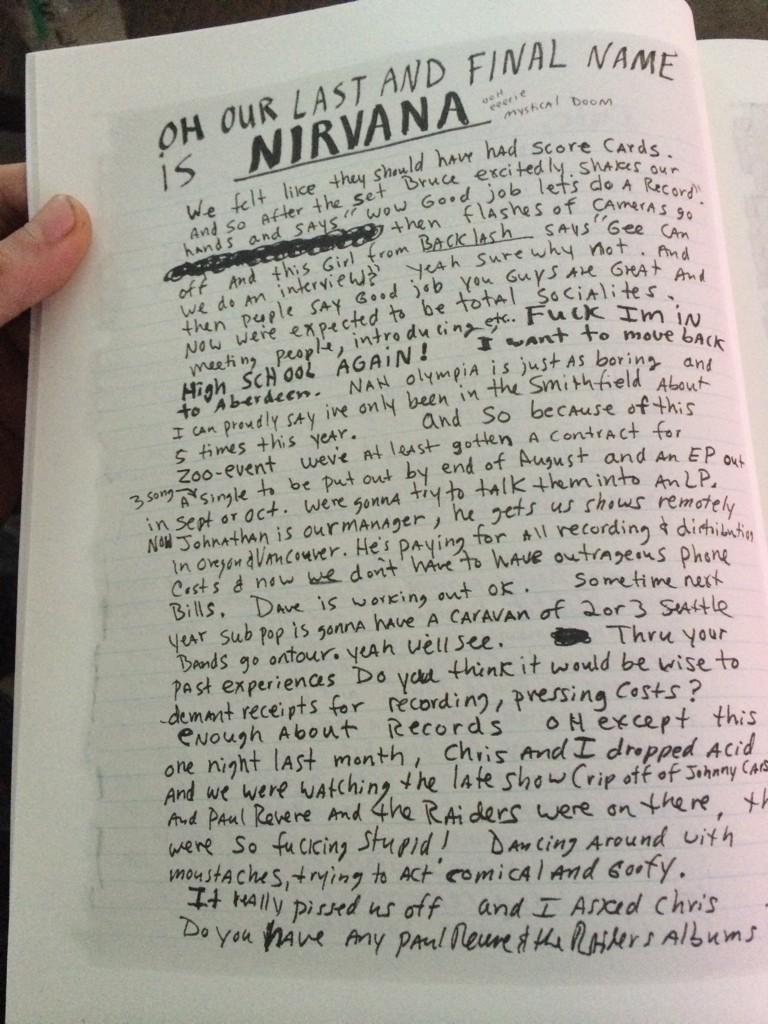 OH OUR LAST AND FINAL NAME
IS NIRVANA ooH eeerie mystical Doom
We felt like they should have had score cards.
And so After the set Bruce excitedly shakes our
hands and says "wow Good job lets do A Record".
then flashes of cameras go
off And this Girl from BACKlash says "Gee can
we do an interview?" yeah sure why not. And
then people say Good job you Guys Are Great And
Now were expected to be total socialites.
meeting people, introducing etc.. Fuck Im in
High SCHOOL AGAIN! I want to move back
to Aberdeen. NAH olympia is just as boring and
I can proudly say ive only been in the Smithfield About
5 times this year. and so because of this
Zoo-event weve At least gotten A contract for
3 song A single to be put out by end of August and An EP out
in sept or oct. were gonna try to talk them into An LP.
Now Johnathan is our manager, he gets us shows remotely
in oregon & Vancouver. He's paying for all recording & distribution
costs & now we don't have to have outrageous phone
Bills. Dave is working out ok. Sometime next
year sub pop is gonna have A CARAVAN of 2 or 3 Seattle
Bands go on tour. yeah we'll see. Thru your
past experiences Do you think it would be wise to
demant receipts for recording, pressing costs?
enough About Records oH except this
one night last month, Chris And I dropped Acid
And we were watching the late show (rip off of Johnny
And Paul Revere And the RAiders were on there,
were so fucking stupid! Dancing Around with
moustaches, trying to Act comical And Goofy.
It really pissed us off and I Asked Chris
Do you have Any Paul Revere & the Raiders Albums